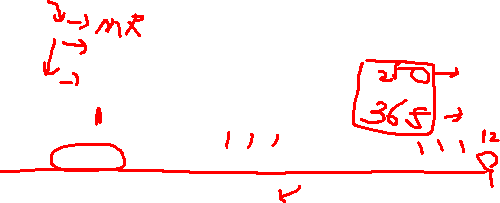 MR
250
365
12